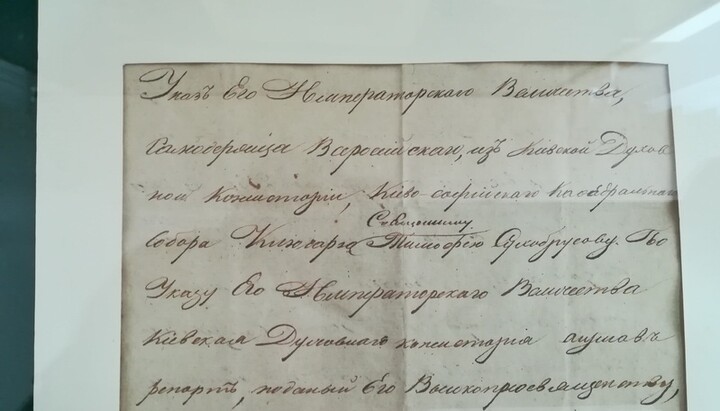 Указъ Его Императорскаго Величества,
Самодержца Всероссійскаго, изъ Кіевской Духов
ной Консисторіи, Кіево-Софійскаго Каѳедральнаго
Священнику
Собора Ключарю Тимофею Сухобрусову. По
Указу Его Императорскаго Величества
Кіевская Духовная Консисторія слушавъ
репортъ, поданый Его Высокопреосвященству,